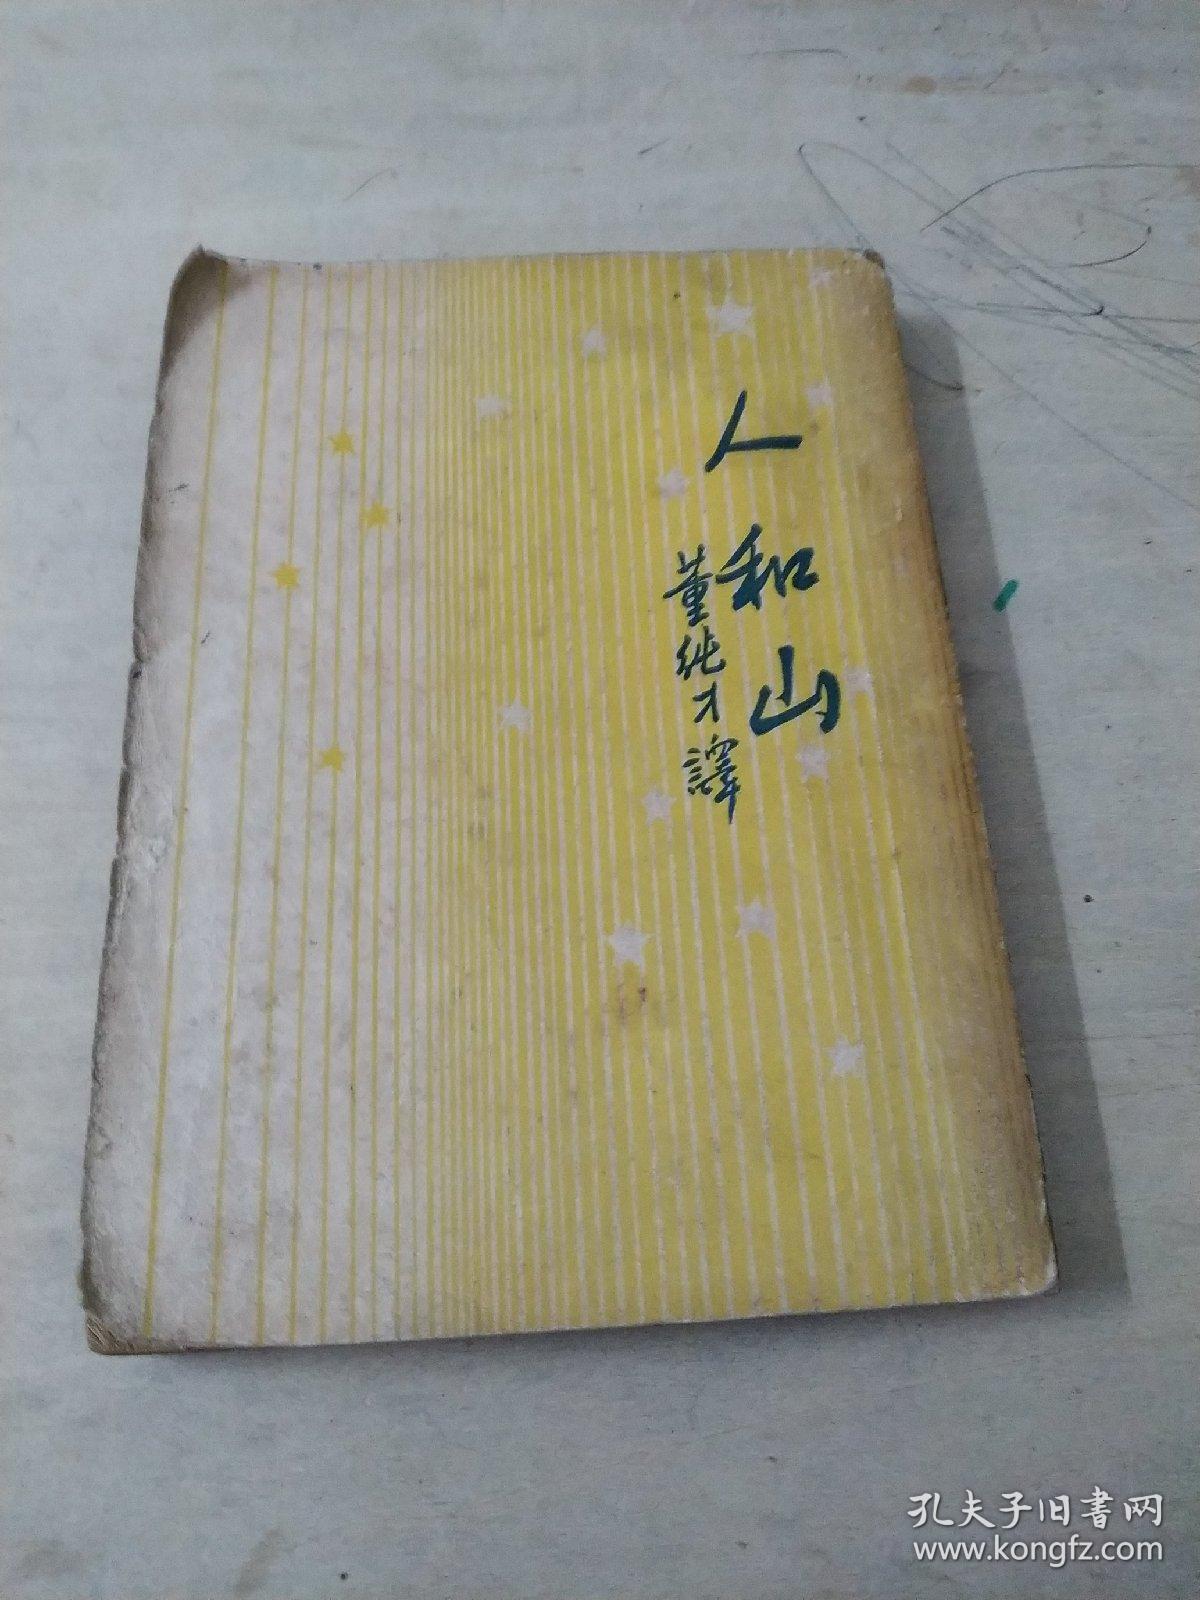 人和山
董纯才譯
孔夫子旧書网
www.kongfz.com